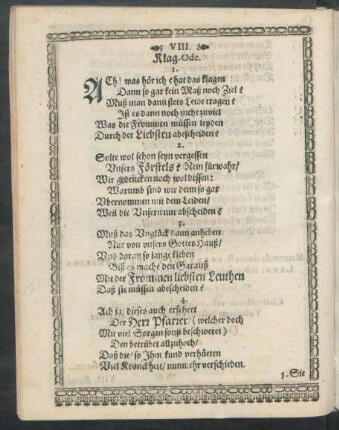 VIII.
Klag-Ode.
1.
ACh! was hör ich? hat das klagen
Dann so gar kein Maß noch Ziel?
Muß man dann stets Leide tragen?
Ist es dann noch nicht zuviel
Was die Frommen müssen leyden
Durch der Liebsten abscheiden?
2.
Solte wol schon seyn vergessen
Unsers Förstels? Nein fürwahr/
Wir gedencken noch wol dessen:
Warumb sind wir denn so gar
Ubernommen mit dem Leiden/
Weil die Unsern nun abscheiden?
3.
Muß das Unglück dann anheben
Nur von unsers Gottes Hauß/
Und daran so lange kleben
Biß es mache den Garauß
Mit der Frommen liebsten Leuthen
Daß sie müssen abscheiden?
4.
Ach ja, dieses auch erfehret
Der Herr Pfarrer/ welcher doch
Mit viel Sorgen sonst beschweret/
Den betrübet allzuhoch/
Daß die/ so Ihn kund verhüten
Viel Kranckheit/ nunmehr verschieden.
5. Sie